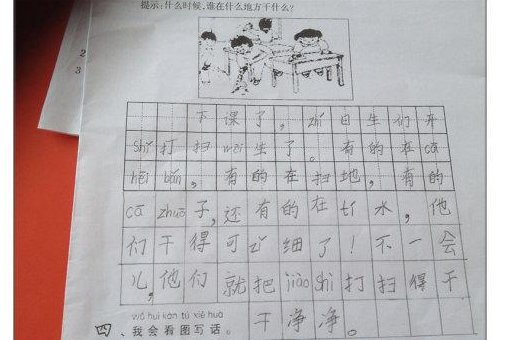 提示:什么时候,谁在什么地方干什么?
2
3
下课了,zhí日生们开
shǐ打扫wèi生了。有的在cā
hēi bǎn,有的在扫地,有的
cā zhuō子,还有的在tí水,他
们干得可zǐ细了!不一会
儿,他们就把jiào shì打扫得干
干净净。
wǒ huì kàn tú xiě huà
四、我会看图写话。